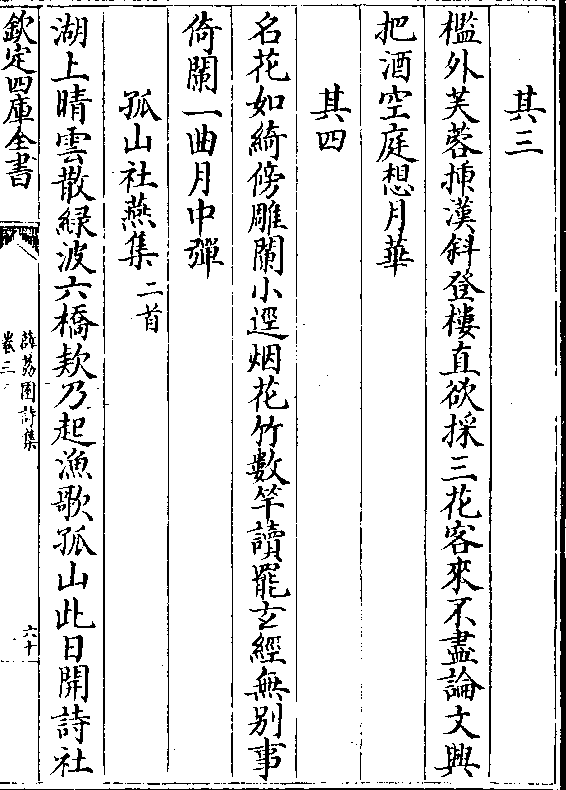 其三
檻外芙蓉揷漢斜登樓直欲採三花客來不盡論文興
把酒空庭想月華
其四
名花如綺傍雕闌小逕烟花竹數竿讀罷玄經無别事
倚闌一曲月中彈
孤山社燕集二首
湖上晴雲散緑波六橋欵乃起漁歌孤山此日開詩社
欽定四庫全書
薜荔園詩集
卷三
六十